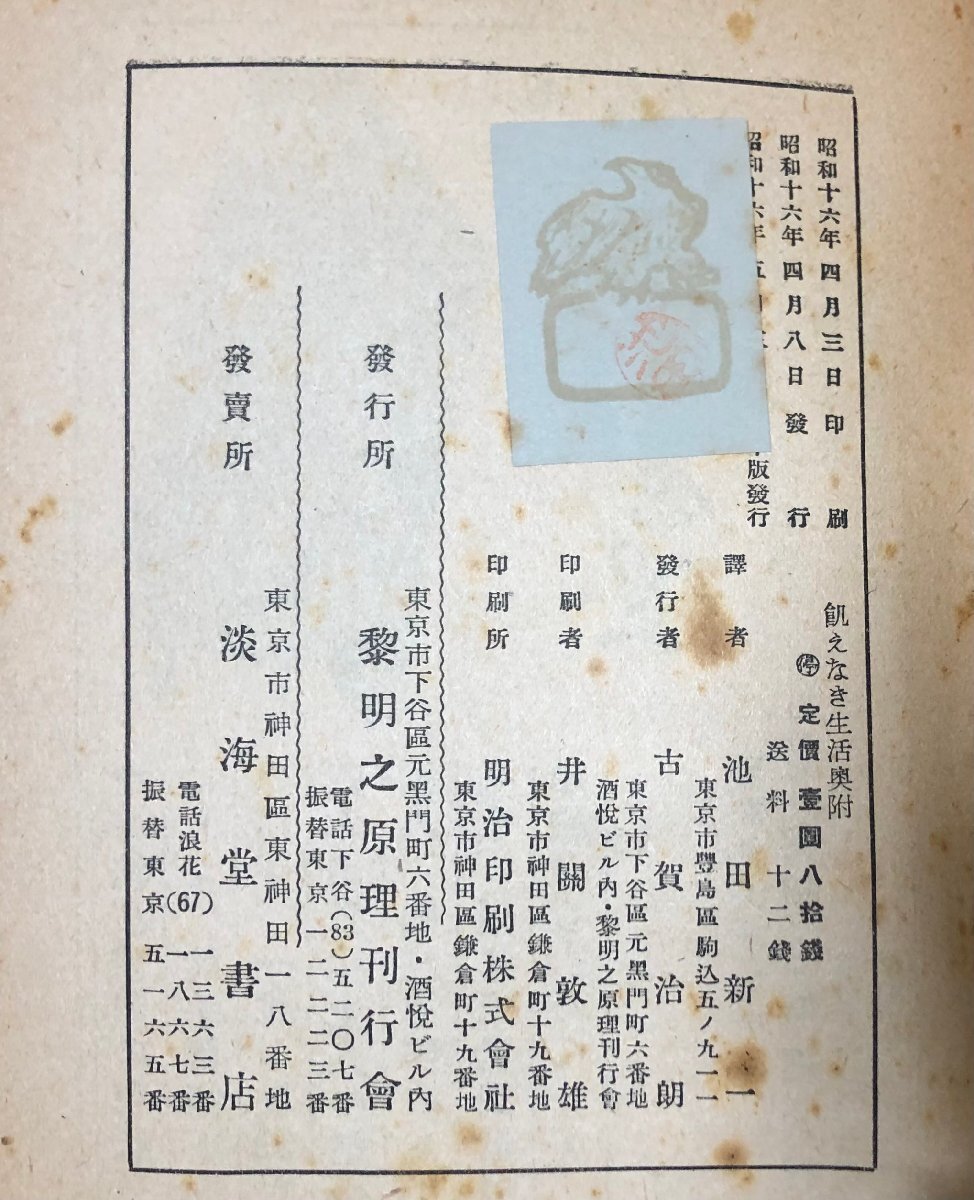 昭和十六年四月三日印刷
昭和十六年四月八日發行
昭和十六年五月
版發行
飢ゑなき生活奥附
㊡定價壹圓八拾錢
送料十二錢
譯者 池田新一
東京市豐島區駒込五ノ九一一
發行者 古賀治朗
東京市下谷區元黑門町六番地
酒悅ビル內・黎明之原理刊行會
印刷者 井關敦雄
東京市神田區鎌倉町十九番地
印刷所 明治印刷株式會社
東京市神田區鎌倉町十九番地
東京市下谷區元黑門町六番地・酒悅ビル內
發行所 黎明之原理刊行會
電話下谷(83)五二〇七番
振替東京一二二二三番
東京市神田區東神田一八番地
發賣所 淡海堂書店
電話浪花(67)一三六三番
一八六七番
振替東京五一六五番